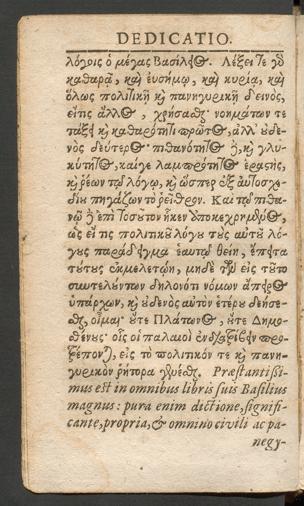 DEDICATIO.
λόγοις ὁ μέγας Βασίλειος. Λέξει τε γὸ
καθαρᾷ, καὶ εὐσήμῳ, καὶ κυρίᾳ, καὶ
ὅλως πολιτικῇ καὶ πανηγυρικῇ δεινὸς,
εἴτις ἄλλος, χρήσασθαι· νοημάτων τε
τάξει καὶ καθαρότητι πρῶτος, ἀλλ' οὐδε-
νὸς δεύτερος· πιθανότητος δὲ, καὶ γλυ-
κύτητος, καίγε λαμπρότητος ἐραστὴς,
καὶ ῥέων τῷ λόγῳ, καὶ ὥσπερ ἐξ αὐτοσχε-
δίου πηγάζων τὸ ῥεῖθρον. Καὶ τῷ πιθα-
νῷ δὲ ἐπὶ τοσοῦτον ἧκεν ἀποκεχρημένος,
ὡς εἴ τις πολιτικοῦ λόγου τοὺς αὐτοῦ λό-
γους παράδειγμα ἑαυτῷ θείη, ἔπειτα
τούτους ἐκμελετῴη, μηδὲ τῶν εἰς τοῦτο
συντελούντων δηλονότι νόμων ἄπειρος
ὑπάρχων, καὶ οὐδενὸς αὐτὸν ἑτέρου δεήσε-
σθαι, οἶμαι· οὔτε Πλάτωνος, οὔτε Δημο-
σθένους· οἷς οἱ παλαιοὶ ἐνδιατρίβειν προ-
τρέπονται, εἰς τὸ πολιτικόν τε καὶ πανη-
γυρικὸν ῥήτορα γενέσθαι. Præstantißi-
mus est in omnibus libris suis Basilius
magnus: pura enim dictione, signifi-
cante, propria, & omnino civili ac pa-
negy-